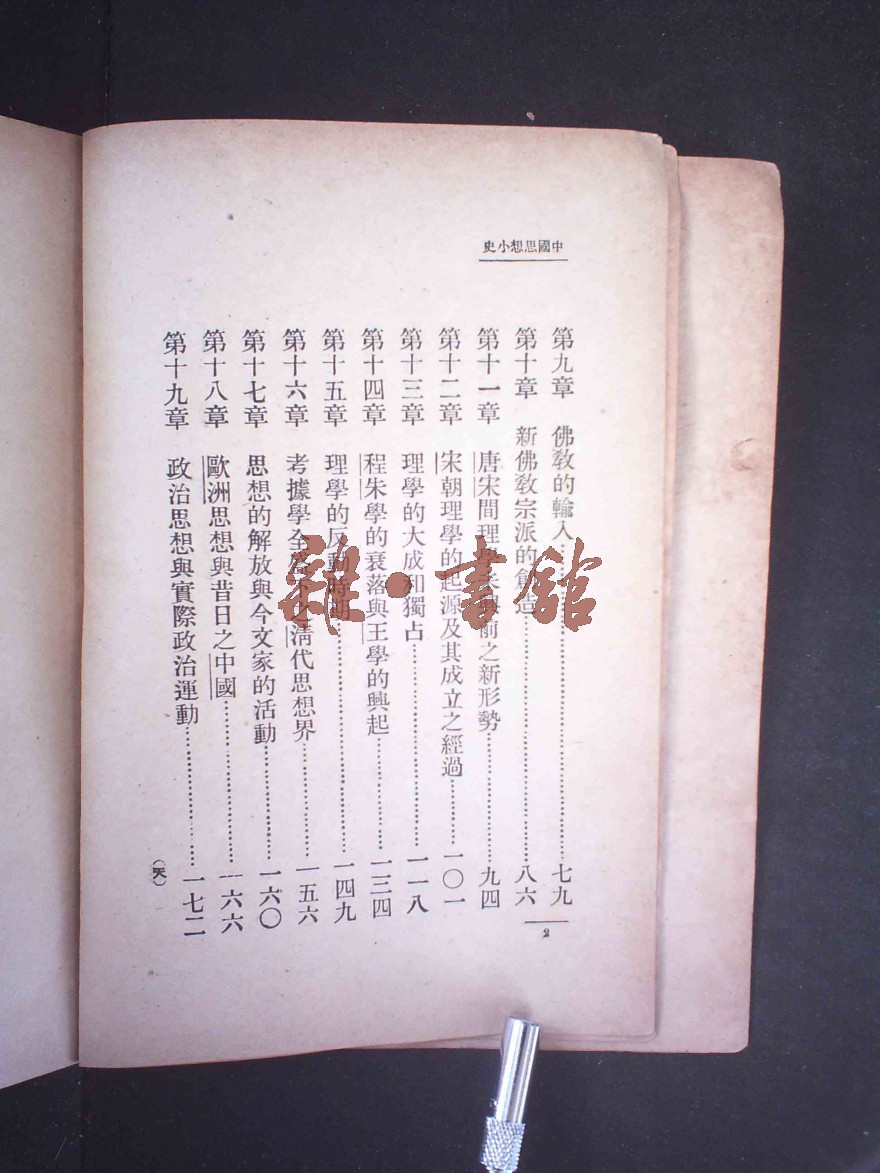 中國思想小史
第九章 佛教的輸入……七九
第十章 新佛教宗派的創造……八六
第十一章 唐宋間理學未興前之新形勢……九四
第十二章 宋朝理學的起源及其成立之經過……一〇一
第十三章 理學的大成和獨占……一一八
第十四章 程朱學的衰落與王學的興起……一三四
第十五章 理學的反動時期……一四九
第十六章 考據學全盛下之清代思想界……一五六
第十七章 思想的解放與今文家的活動……一六〇
第十八章 歐洲思想與昔日之中國……一六六
第十九章 政治思想與實際政治運動……一七二
(天)
2
雜·書館